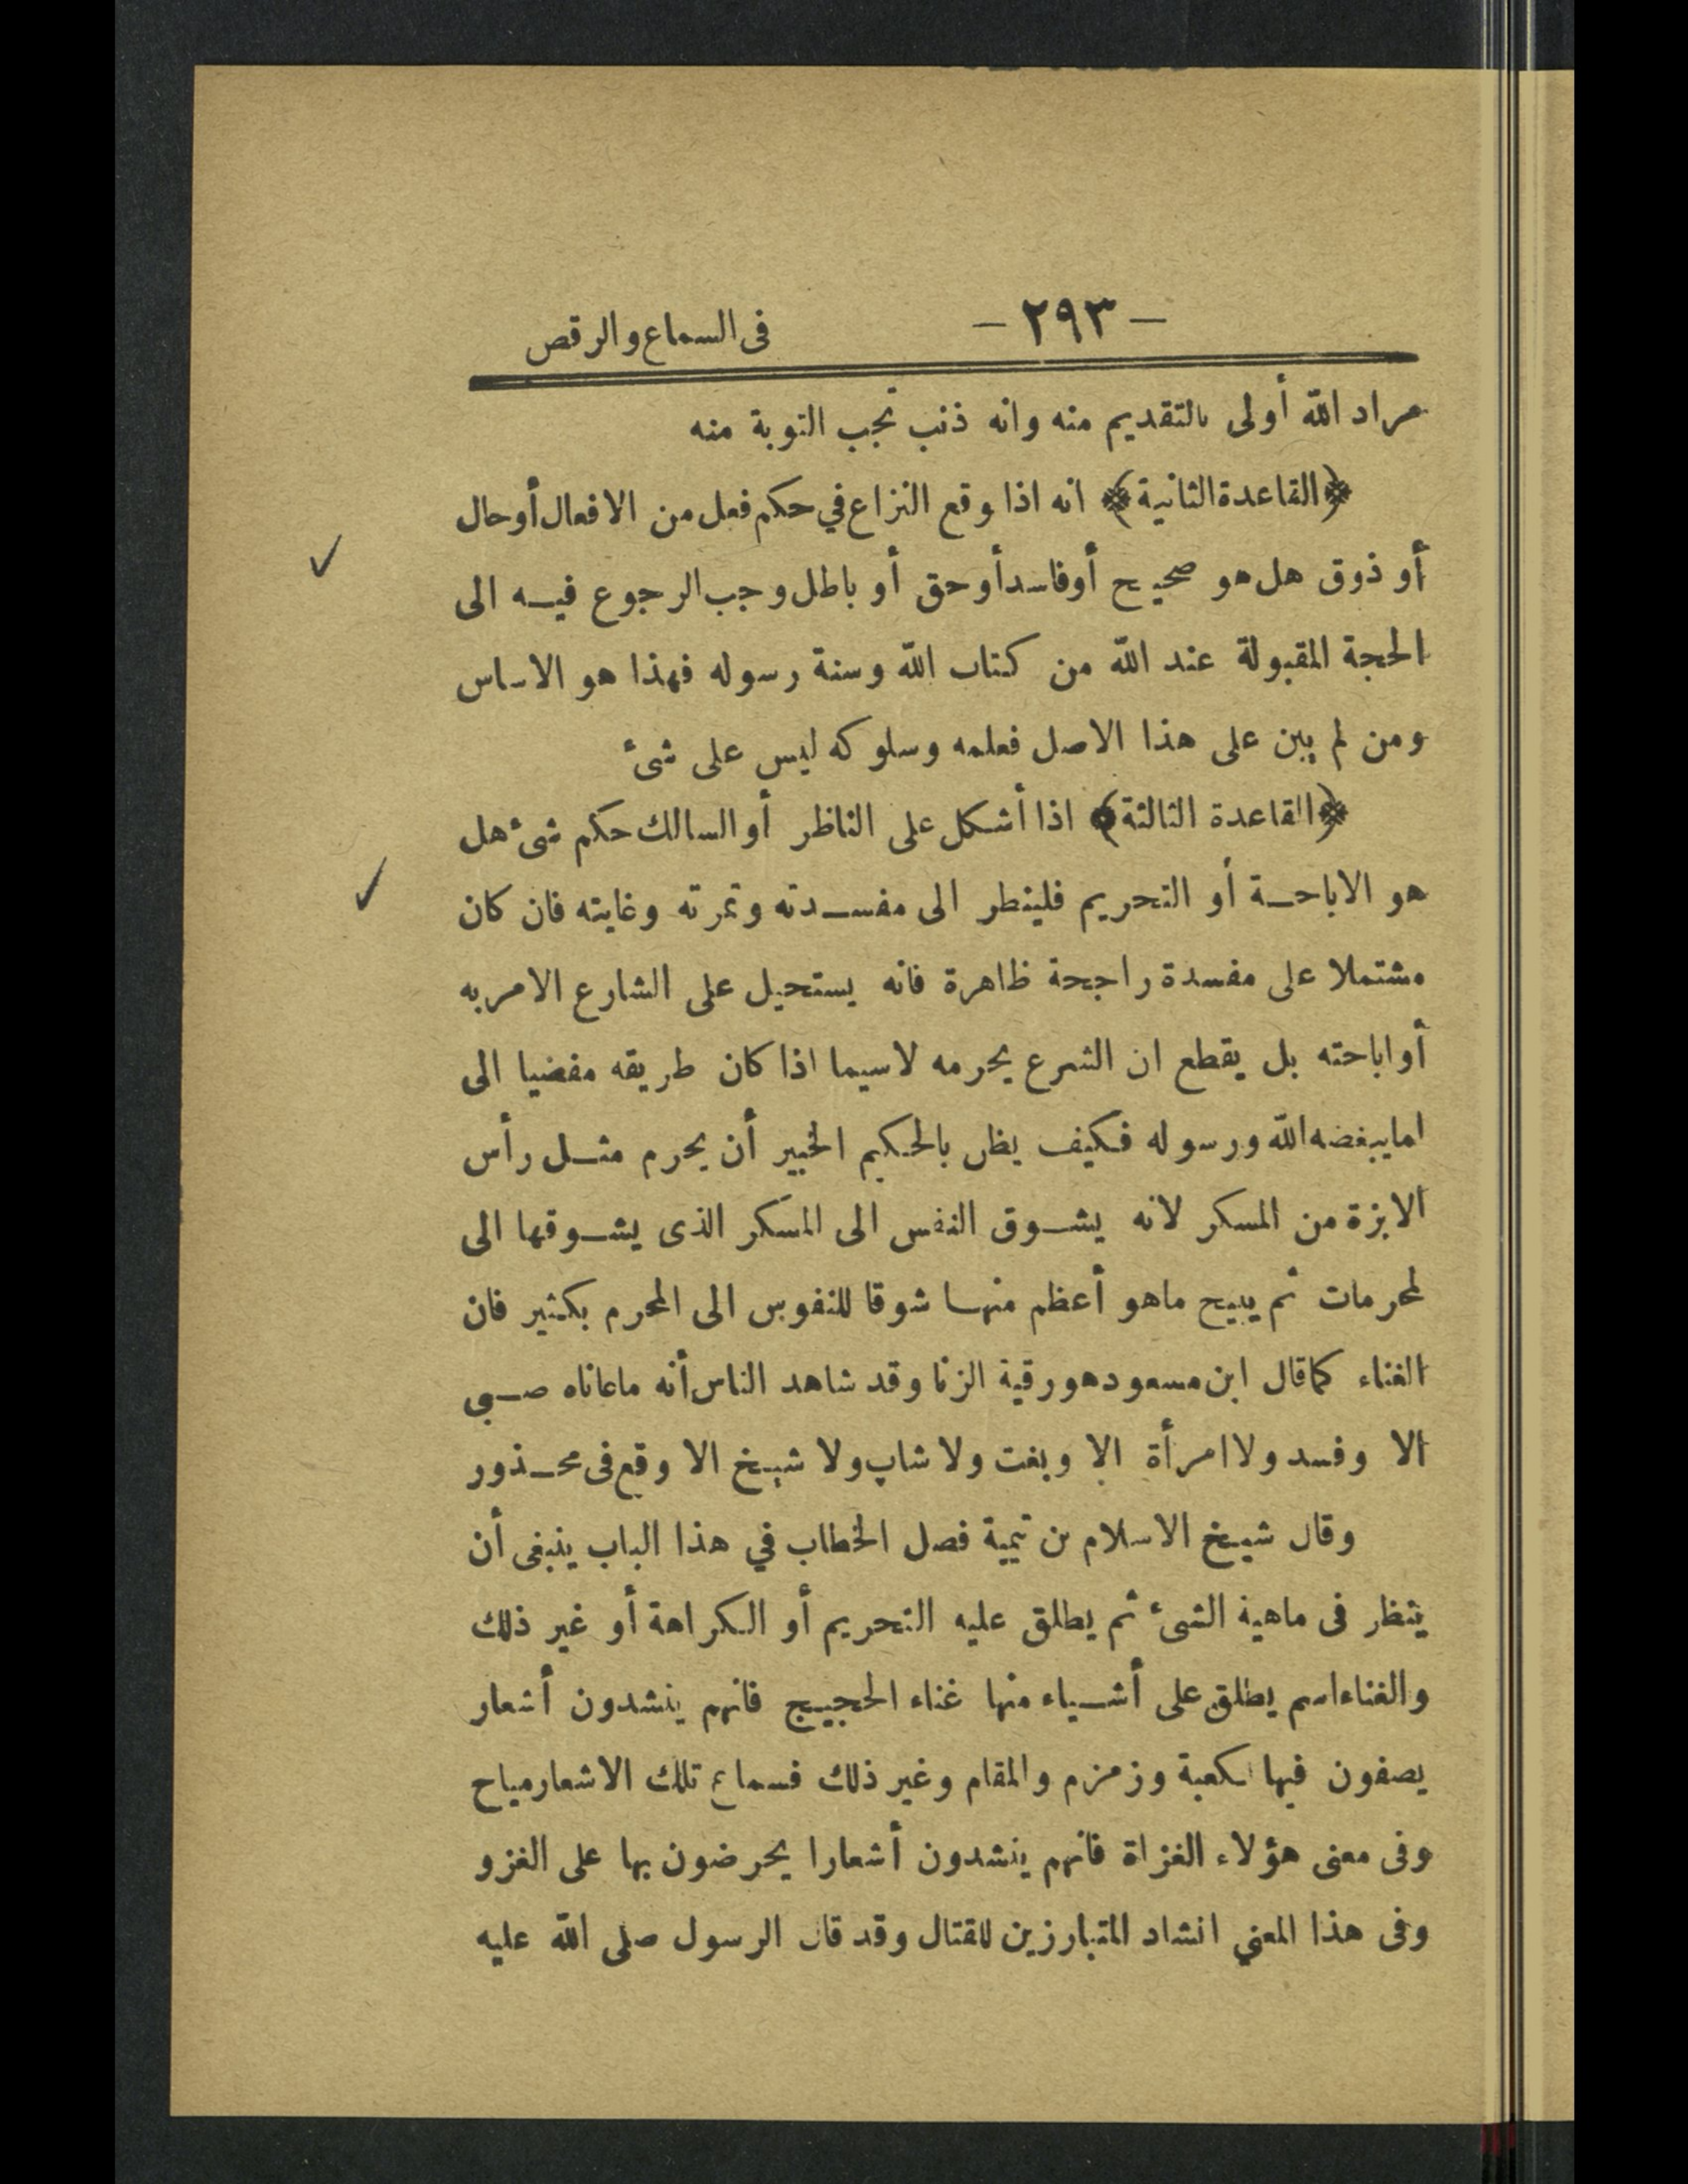 — ٢٩٣ — فى السماع والرقص
مراد الله أولى بالتقديم منه وانه ذنب تجب التوبة منه
﴿القاعدة الثانية﴾ انه اذا وقع النزاع في حكم فعل من الافعال أو حال
أو ذوق هل هو صحيح أو فاسد أو حق أو باطل وجب الرجوع فيه الى
الحجة المقبولة عند الله من كتاب الله وسنة رسوله فهذا هو الاساس
ومن لم يبن على هذا الاصل فعلمه وسلوكه ليس على شئ
﴿القاعدة الثالثة﴾ اذا أشكل على الناظر أو السالك حكم شئ هل
هو الاباحة أو التحريم فلينظر الى مفسدته وثمرته وغايته فان كان
مشتملا على مفسدة راجحة ظاهرة فانه يستحيل على الشارع الامر به
أو اباحته بل يقطع ان الشرع يحرمه لاسيما اذا كان طريقه مفضيا الى
امايبغضه الله ورسوله فكيف يظن بالحكيم الخبير أن يحرم مثل رأس
الابزة من المسكر لانه يشوق النفس الى المسكر الذى يشوقها الى
لمحرمات ثم يبيح ماهو أعظم منها شوقا للنفوس الى المحرم بكثير فان
الغناء كماقال ابن مسعود هو رقية الزنا وقد شاهد الناس أنه ماعاناه صبى
الا وفسد ولا امرأة الا وبغت ولا شاب ولا شيخ الا وقع فى محذور
وقال شيخ الاسلام بن تيمية فصل الخطاب في هذا الباب ينبغى أن
ينظر فى ماهية الشئ ثم يطلق عليه التحريم أو الكراهة أو غير ذلك
والغناء اسم يطلق على أشياء منها غناء الحجيج فانهم ينشدون أشعار
يصفون فيها الكعبة وزمزم والمقام وغير ذلك فسماع تلك الاشعار مباح
وفى معنى هؤلاء الغزاة فانهم ينشدون أشعارا يحرضون بها على الغزو
وفى هذا المعني انشاد المتبارزين للقتال وقد قال الرسول صلى الله عليه